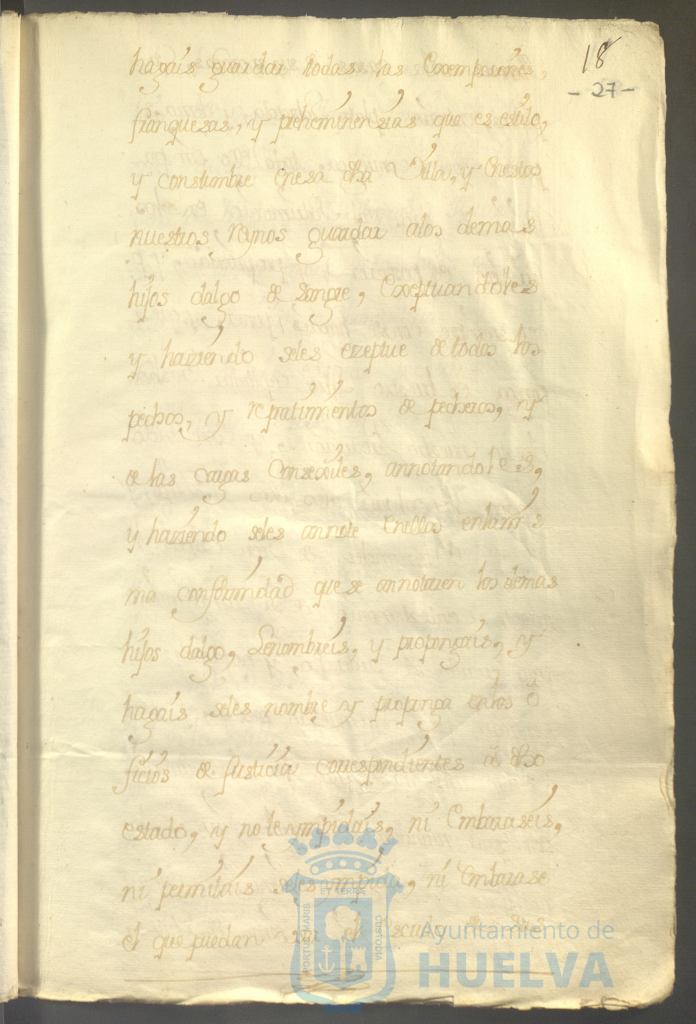 18
- 27 -
hagais guardar todas las Exempciones,
franquezas, y preheminenzias que es estilo,
y constumbre en esa dha Villa, y en estos
nuestros Reynos guardar alos demas
hijos dalgo de Sangre, Exeptuandoles
y haziendo seles exeptue de todos los
pechos, y repartimientos de pecheros, y
de las cargas Conzexiles, annotandoles,
y haziendo seles annote en ellas enla mis
ma conformidad que se annotaren los demas
hijos dalgo, Lenombreis, y propongais, y
hagais seles nombre y proponga enlos o
ficios de Justicia correspondientes a dho
estado, y no le ympidais, ni Embaraseis,
ni permitais seles impida, ni Embarase
el que puedan el Escudo de sus
PORTUS MARIS ET TERRE CUSTODIA
Ayuntamiento de
HUELVA